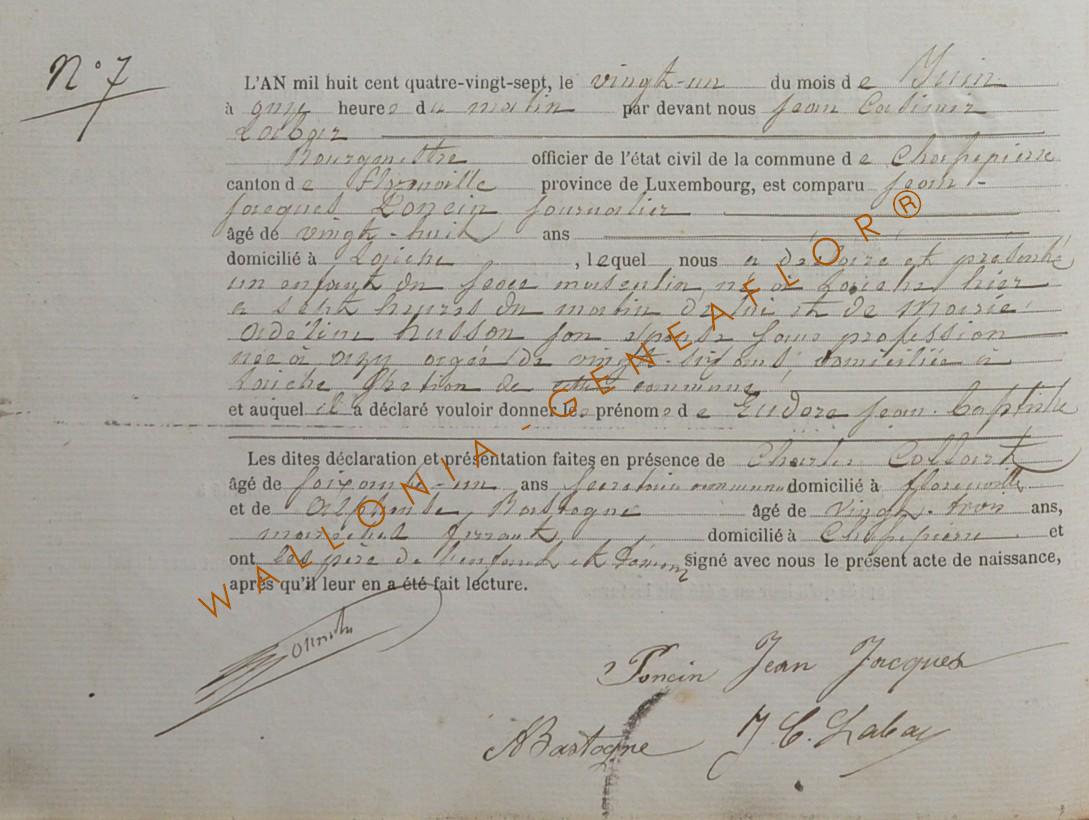 N° 7
L'AN mil huit cent quatre-vingt-sept, le vingt-un du mois de Juin
à onze heures du matin par devant nous Jean Casimir
Labaz
Bourgmestre officier de l'état civil de la commune de Chassepierre
canton de Florenville province de Luxembourg, est comparu Jean-
Jacques Poncin journalier
âgé de vingt-huit ans
domicilié à Laiche, lequel nous a déclaré et présenté
un enfant du sexe masculin, né à Laiche hier
à sept heures du matin de lui et de Marie
Adéline Husson son épouse sans profession
née à Izy agée de vingt-six ans, domiciliée à
Laiche section de cette commune,
et auquel il a déclaré vouloir donner les prénoms de Eudore Jean-Baptiste
Les dites déclaration et présentation faites en présence de Charles Collart
âgé de soixante-un ans secrétaire communal domicilié à Florenville
et de Alphonse Bastogne âgé de vingt-trois ans,
maréchal ferrant domicilié à Chassepierre et
ont les père de l'enfant et témoins signé avec nous le présent acte de naissance,
après qu'il leur en a été fait lecture.
Poncin Jean Jacques
ABastogne J. C. Labaz
WALLONIA-GENEAFLOR®